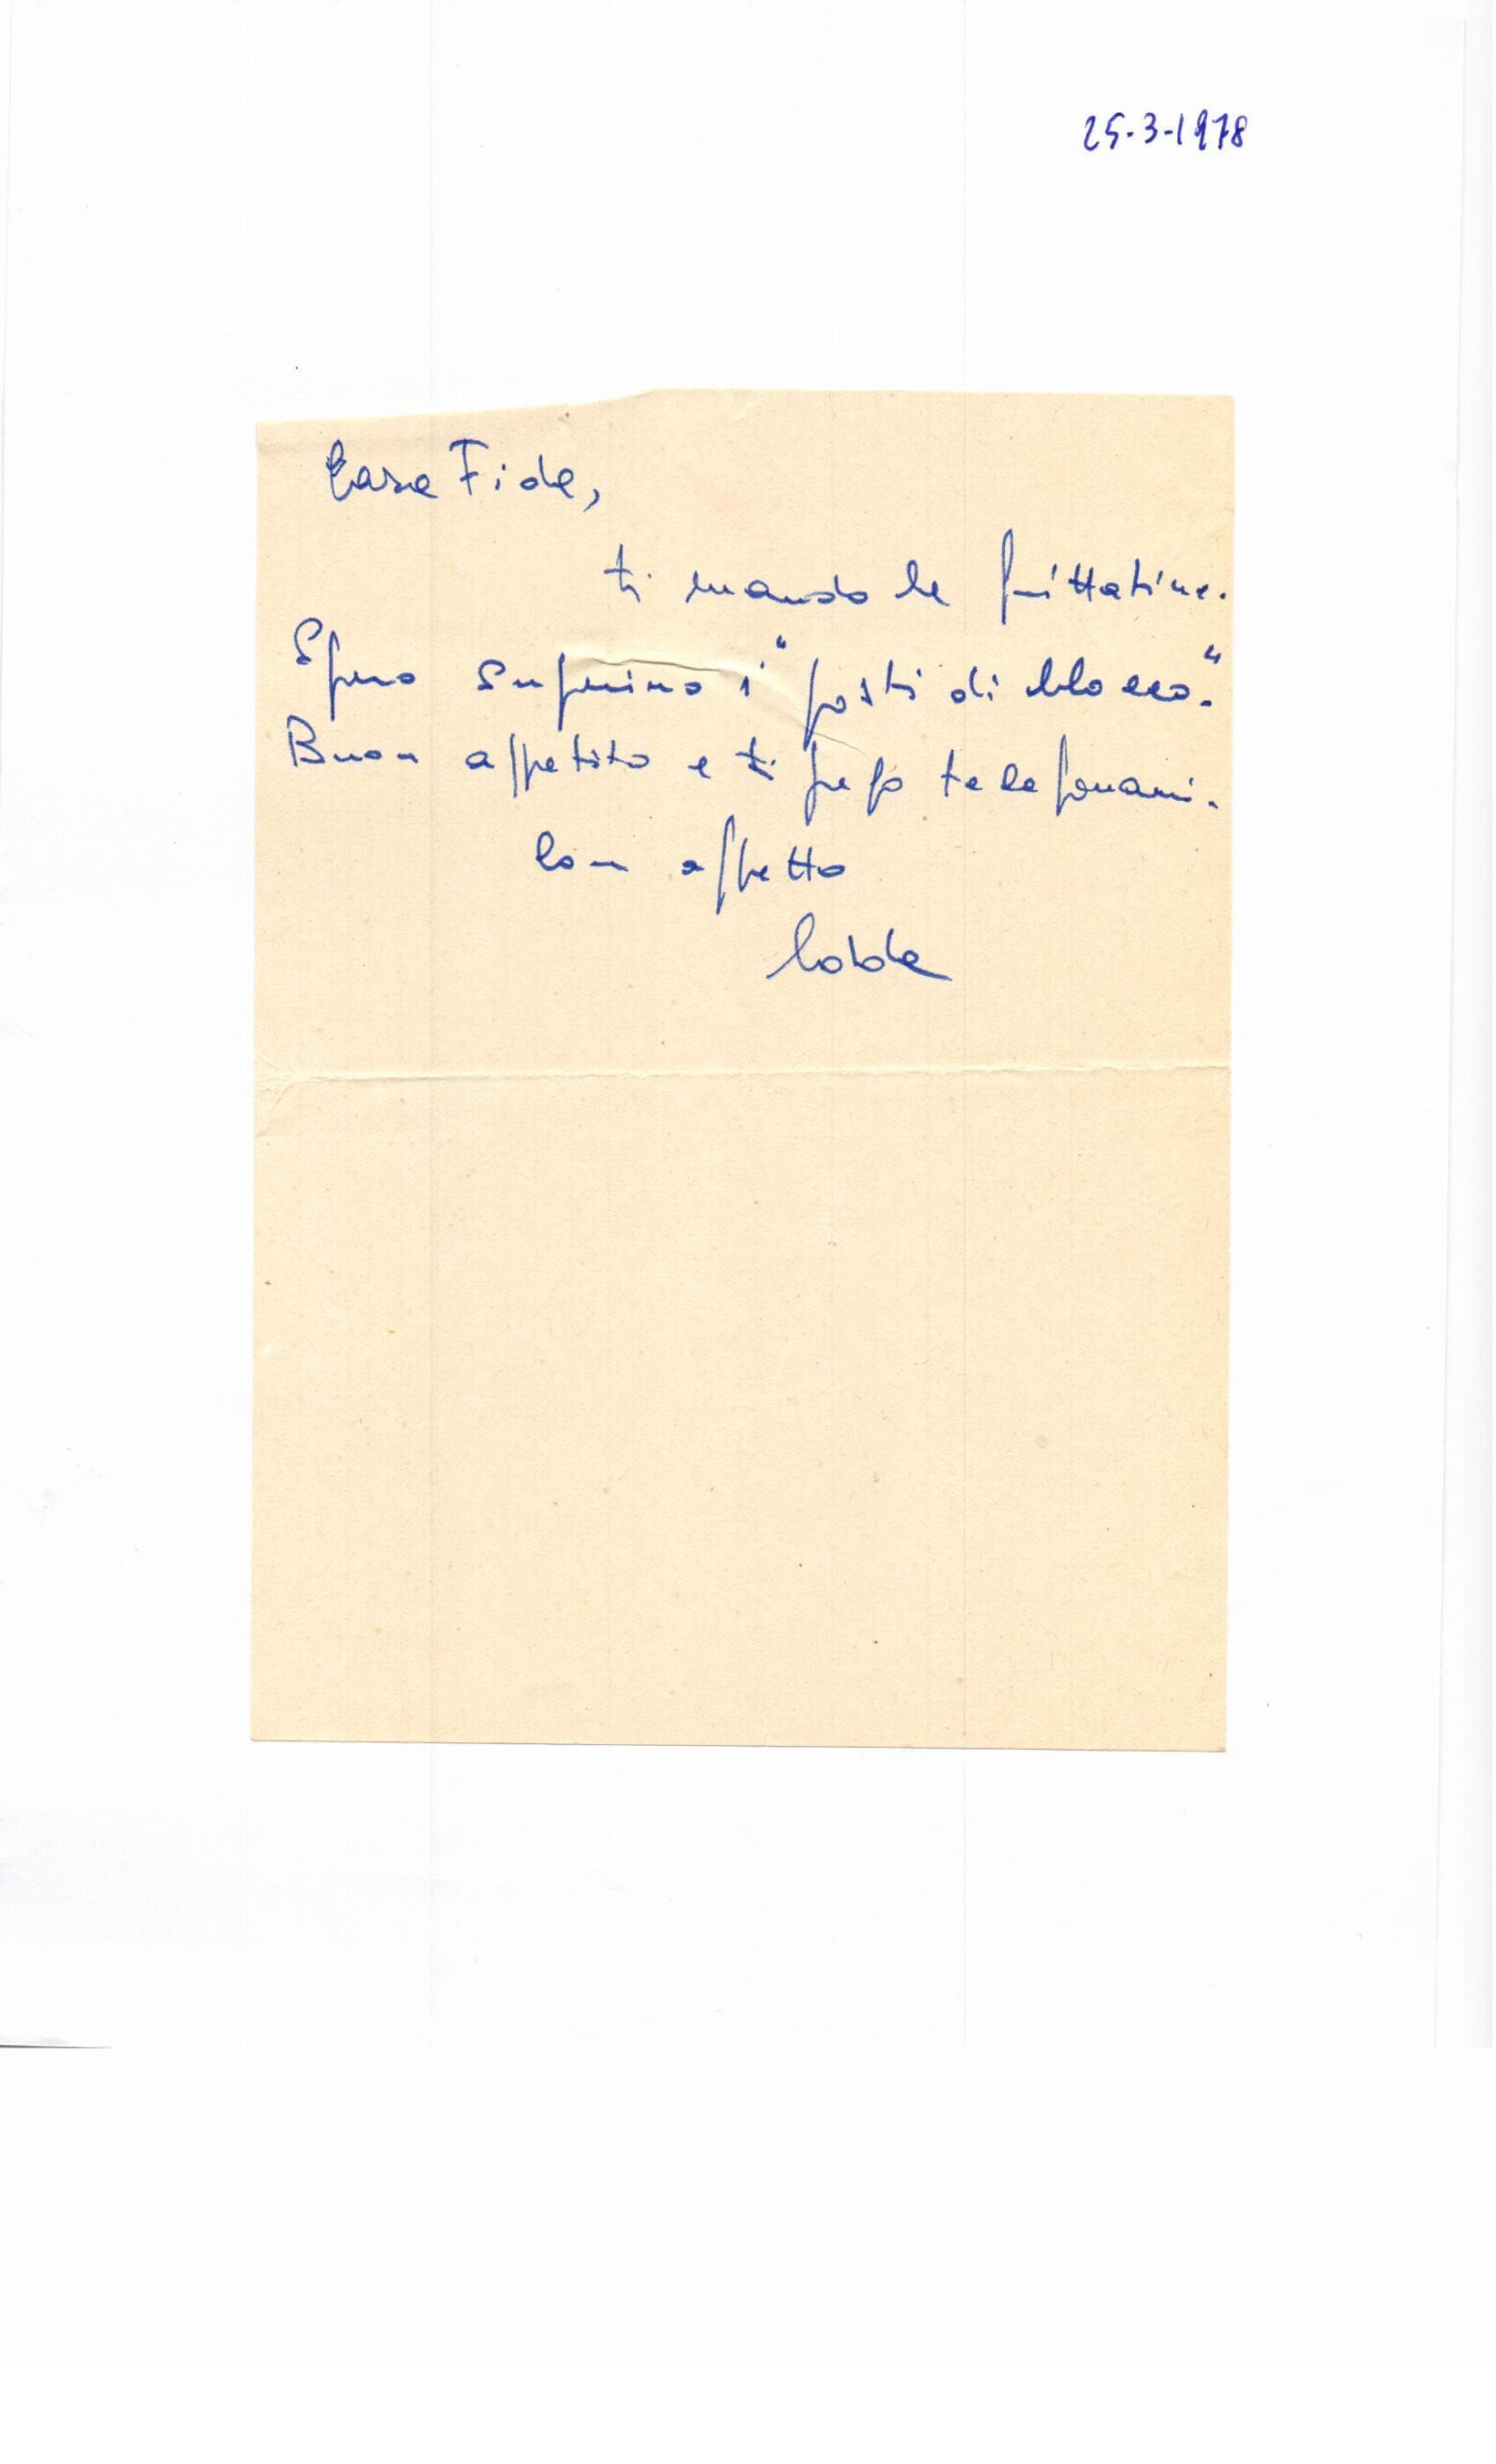 25-3-1978
Cara Fida,
ti mando le frittatine.
Spero superino i "posti di blocco."
Buon appetito e ti prego telefonami.
Con affetto